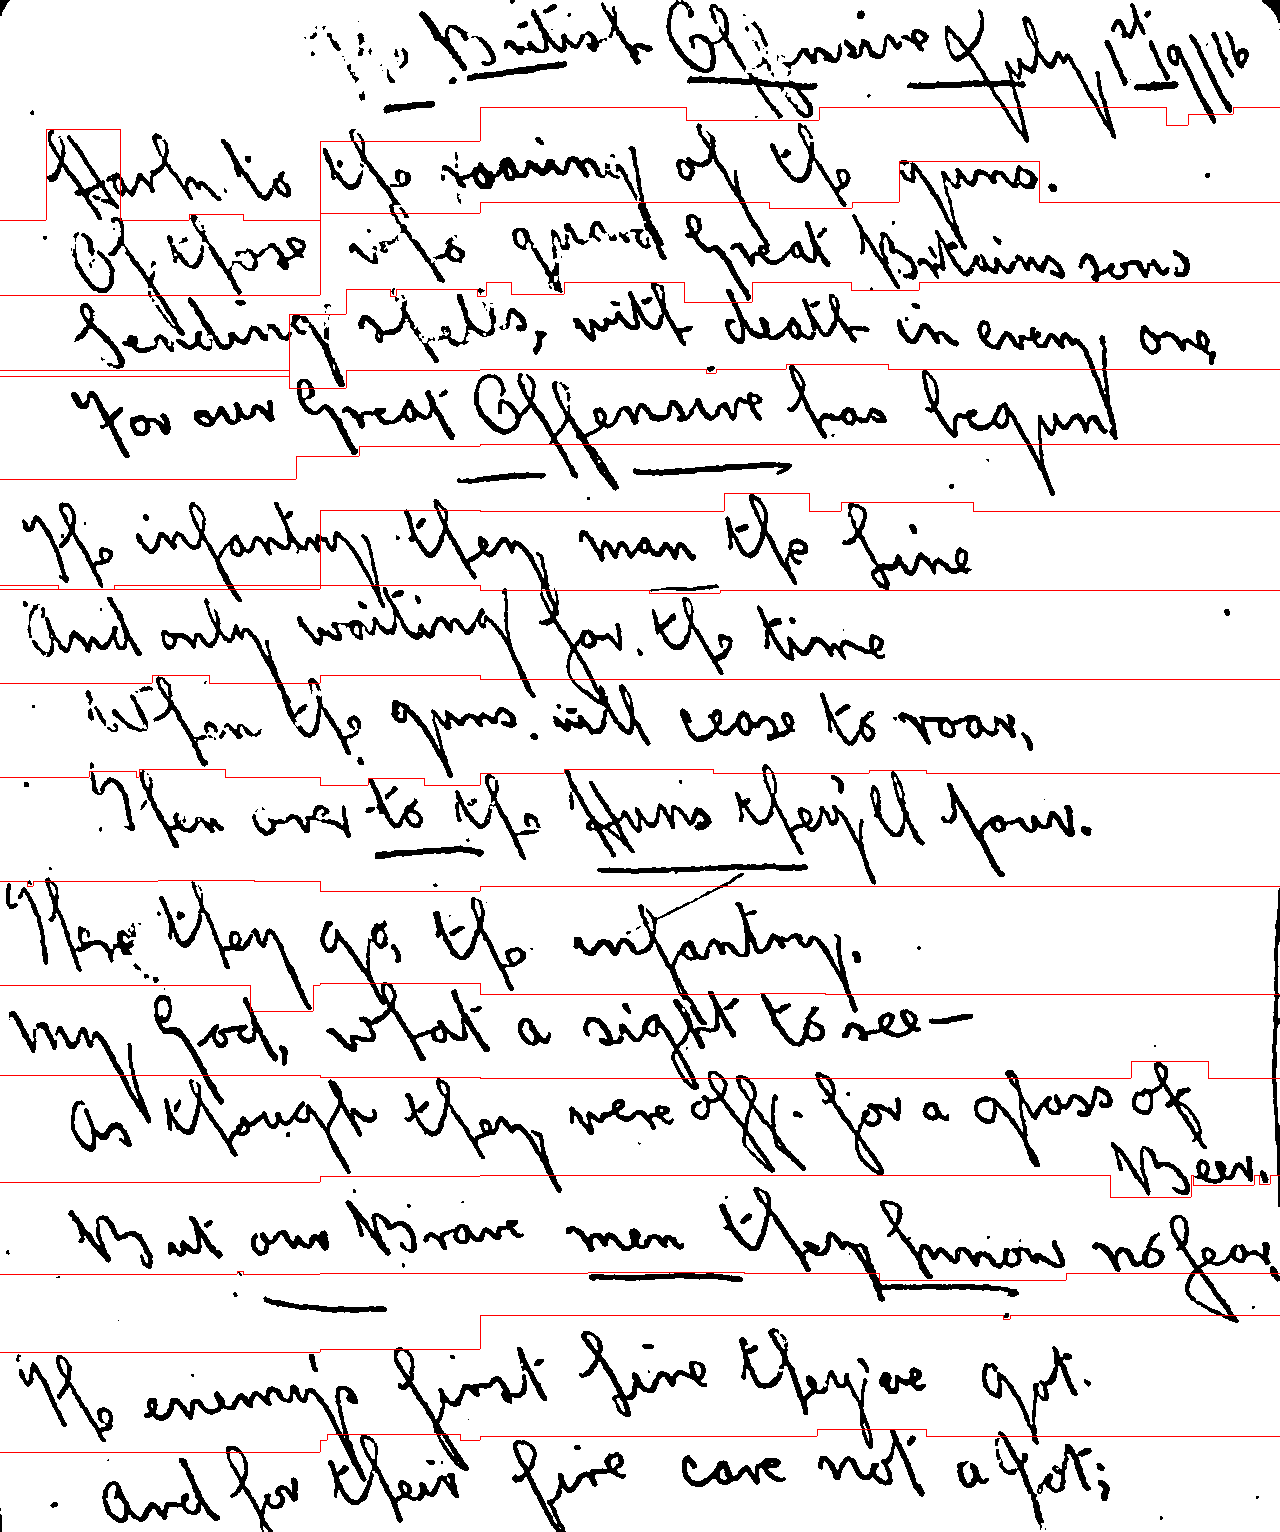 The British Offensive July 1st 1916
Hark to the roaring of the guns.
Of those who guard Great Britains sons
Sending shells, with death in every one,
For our Great Offensive has begun
The infantry they man the line
And only waiting for. the time
When the guns will cease to roar,
Then over to the Huns they'll pour.
There they go, the infantry.
My God, what a sight to see—
As though they were off. for a glass of
Beer.
But our Brave men they know no fear.
The enemy's first line they've got.
And for their fire care not a jot;